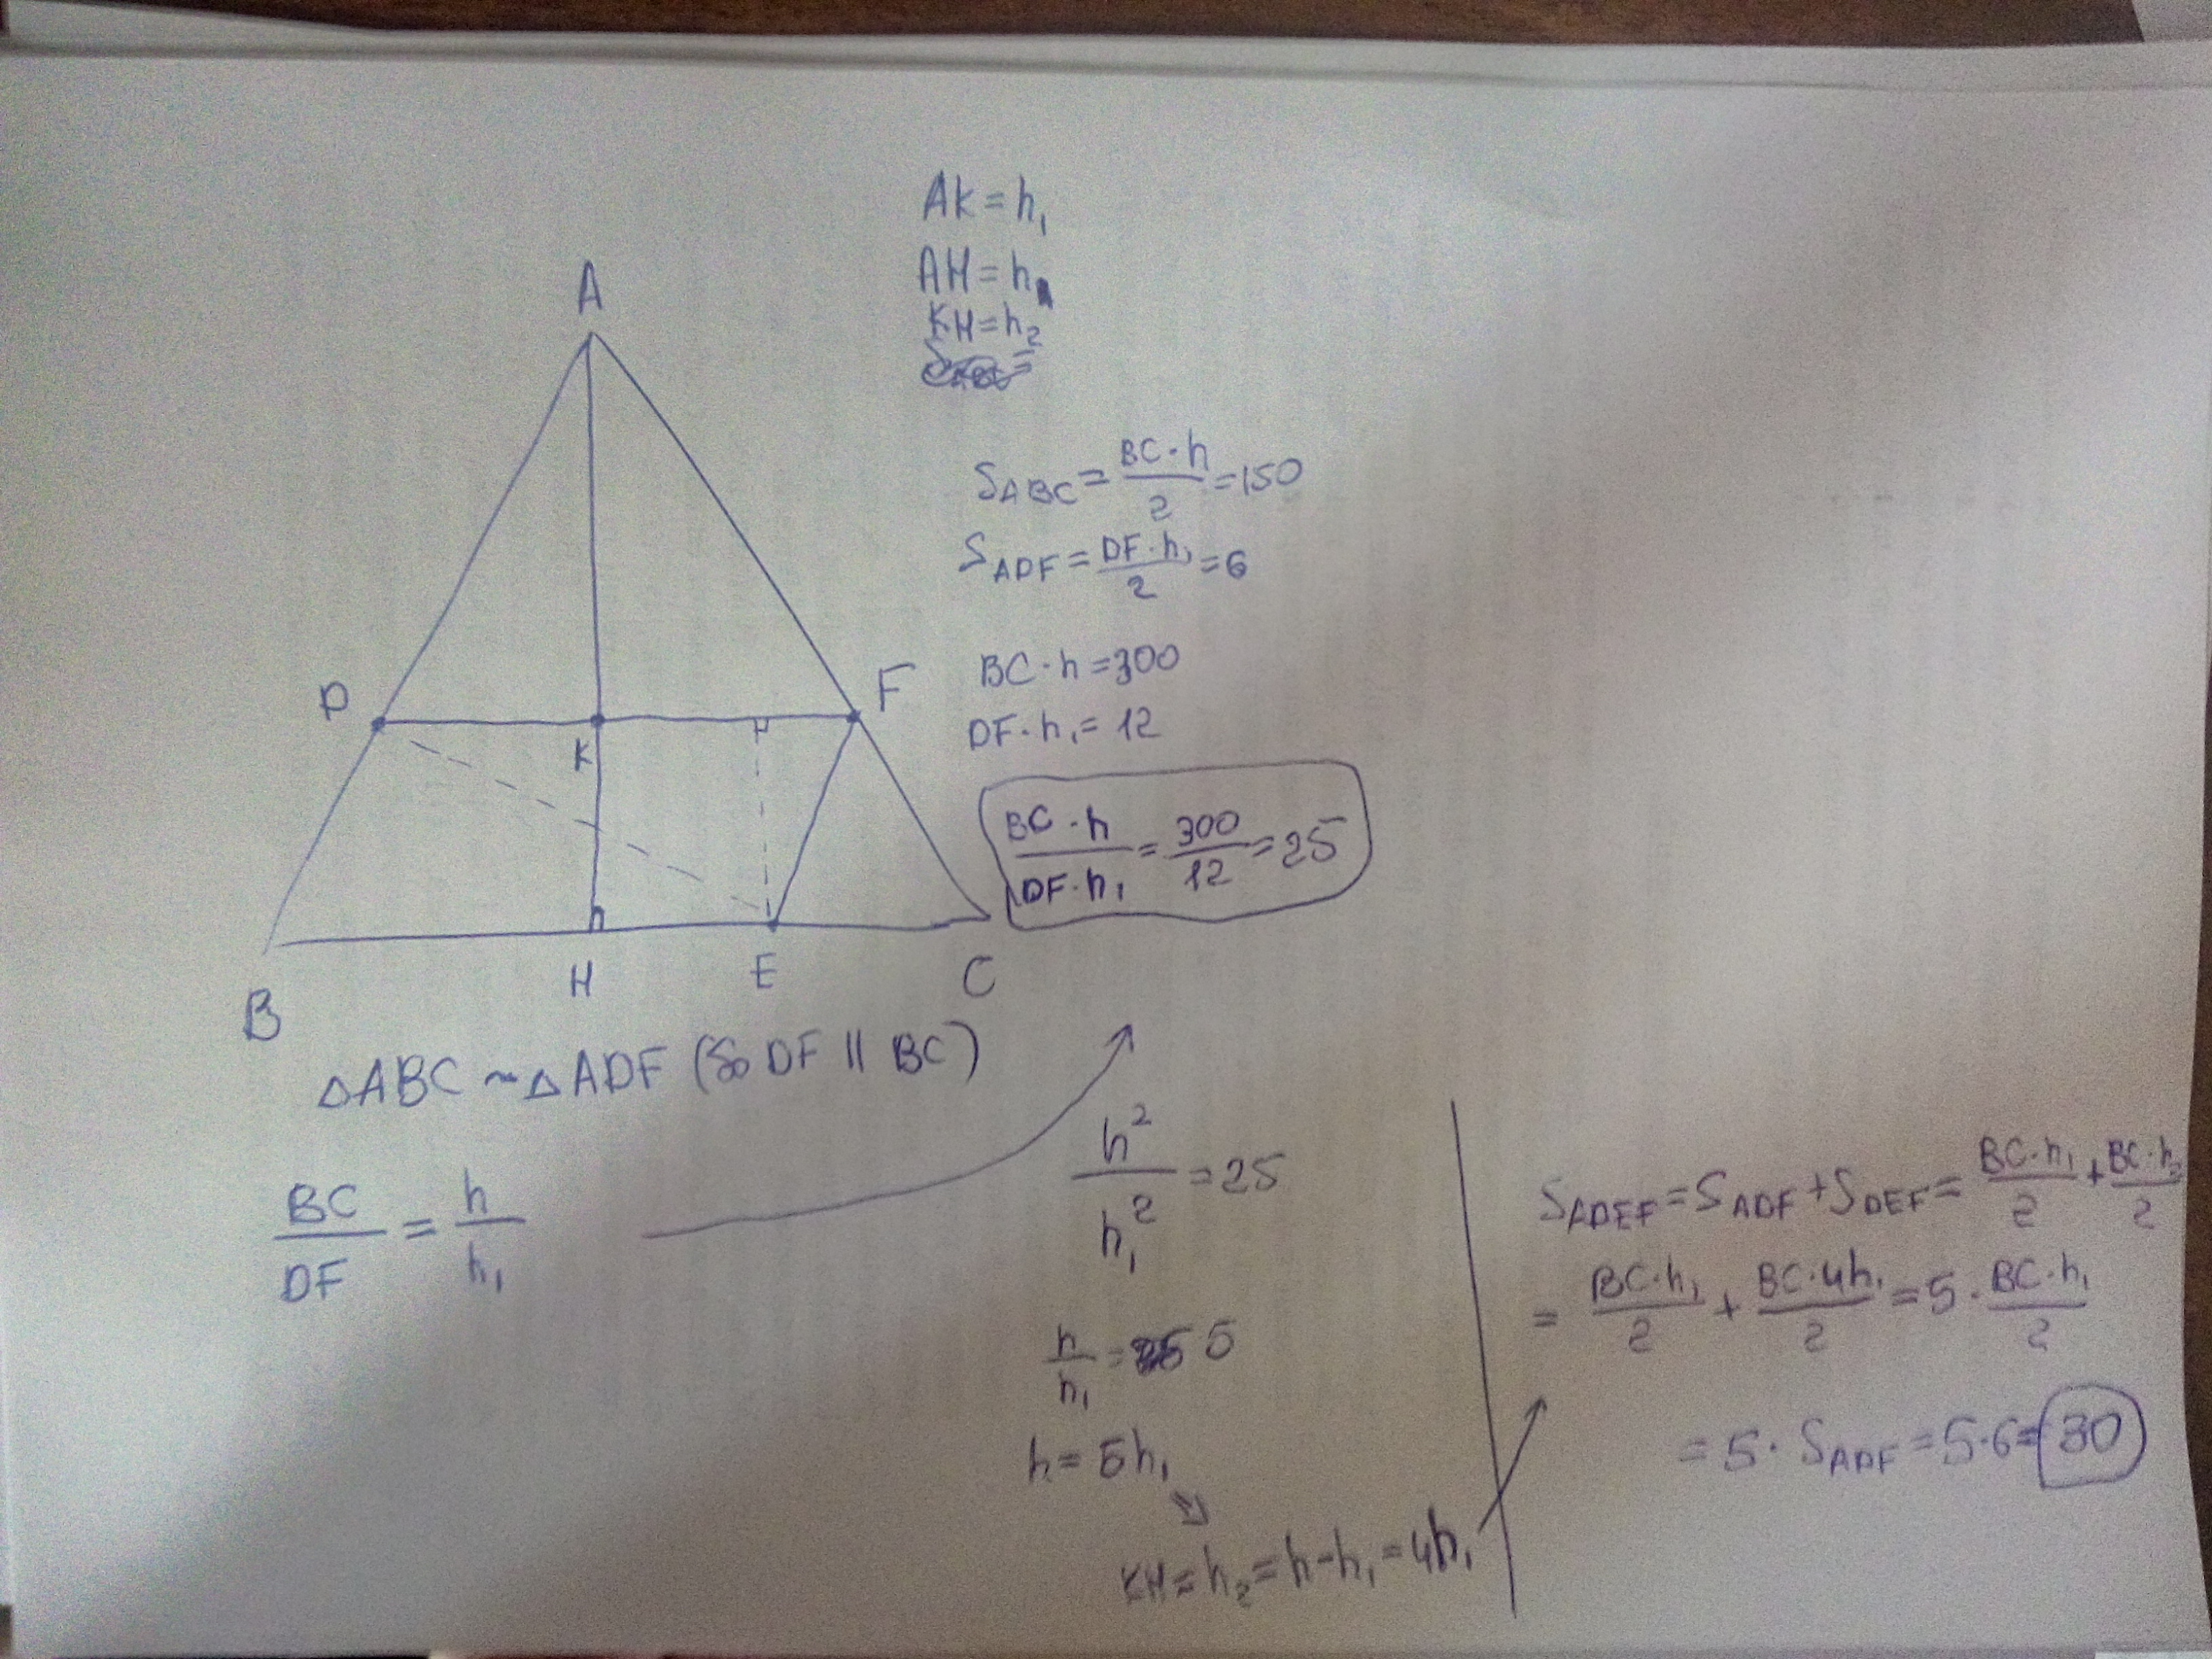 AK = h₁
AH = h
KH = h₂
S_ABC = (BC · h)/2 = 150
S_ADF = (DF · h₁)/2 = 6
BC · h = 300
DF · h₁ = 12
(BC · h)/(DF · h₁) = 300/12 = 25
A
D
F
K
B
H
E
C
△ABC ~ △ADF (бо DF || BC)
BC/DF = h/h₁
h²/h₁² = 25
h/h₁ = 5
h = 5h₁
KH = h₂ = h - h₁ = 4h₁
S_ADEF = S_ADF + S_DEF = (BC · h₁)/2 + (BC · h₂)/2
= (BC · h₁)/2 + (BC · 4h₁)/2 = 5 · (BC · h₁)/2
= 5 · S_ADF = 5 · 6 = 30